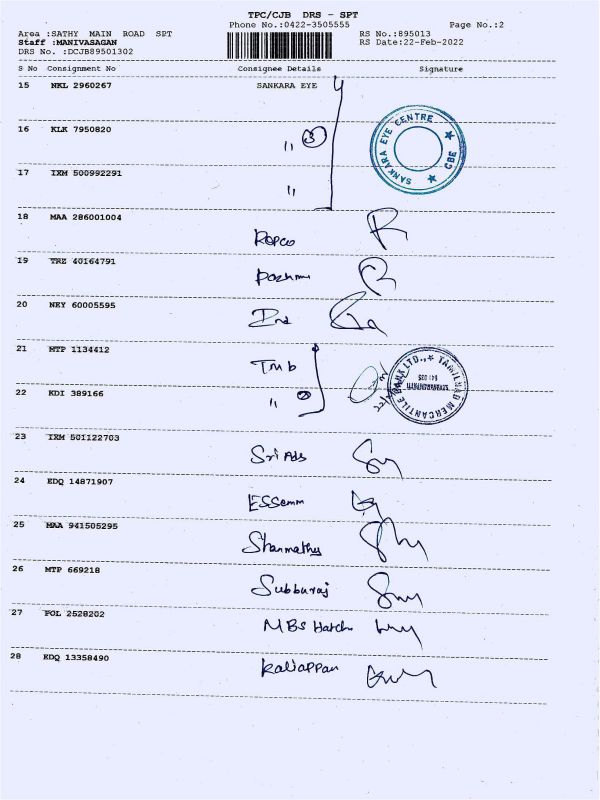 TPC/CJB DRS - SPT
Phone No.:0422-3505555 Page No.:2
Area :SATHY MAIN ROAD SPT RS No.:895013
Staff :MANIVASAGAN RS Date:22-Feb-2022
DRS No. :DCJB89501302
S No Consignment No Consignee Details Signature
15 NKL 2960267 SANKARA EYE
16 KLK 7950820 " 3
SANKARA EYE CENTRE ★ CBE ★
17 IXM 500992291 "
18 MAA 286001004 Ropco
19 TRZ 40164791
20 NEY 60005595 Ind
21 MTP 1134412 Tmb
TAMILNAD MERCANTILE BANK LTD., ★
641 035
22 KDI 389166 " 2
23 IXM 501122703 Sri Ads
24 EDQ 14871907 ESSemm
25 MAA 941505295 Shanmathy
26 MTP 669218 Subburaj
27 POL 2528202 MBS Hatch
28 EDQ 13358490 Kaliappan